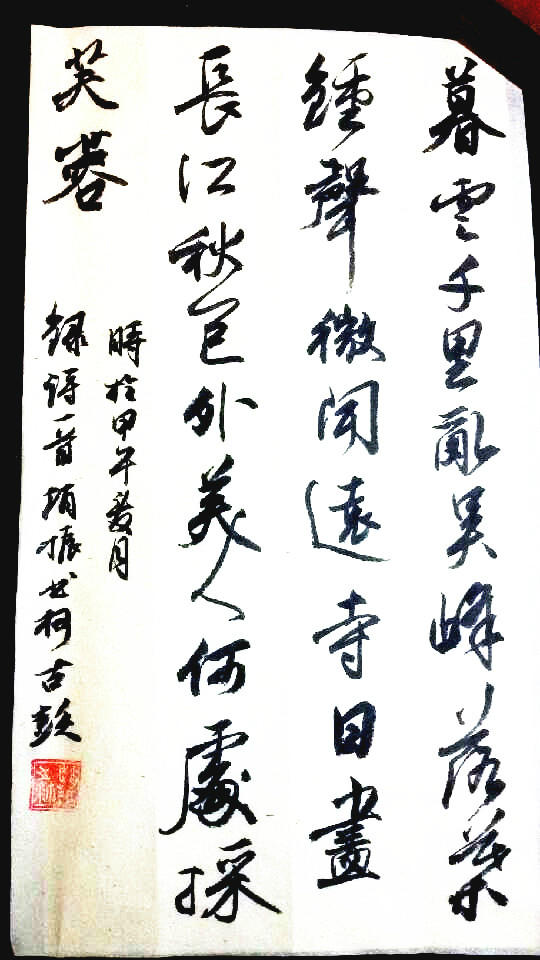 暮雲千里亂吳峰落葉
鍾聲微聞遠寺日晝
長江秋色外美人何處採
芙蓉
時於甲午葭月
錄詩一首 振書於古彭